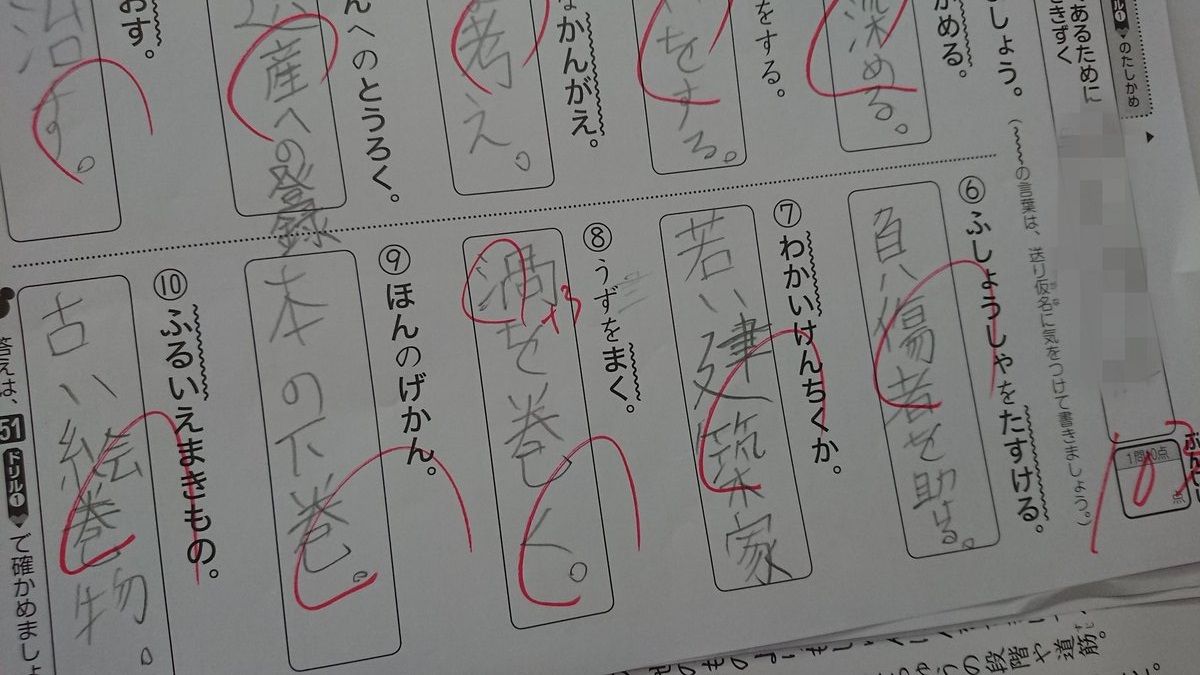 ドリル① のたしかめ
あるために
きずく
しょう。(の言葉は、送り仮名に気をつけて書きましょう。)
1問10点
点
かめる。
深める。
をする。
をする。
なかんがえ。
考え。
んへのとうろく。
産への登録
おす。
治す。
⑥ ふしょうしゃをたすける。
負い傷者を助ける。
⑦ わかいけんちくか。
若い建築家
⑧ うずをまく。
渦を巻く。
+3
⑨ ほんのげかん。
本の下巻。
⑩ ふるいえまきもの。
古い絵巻物。
答えは、51 ドリル① で確かめましょ
の段階や道筋。